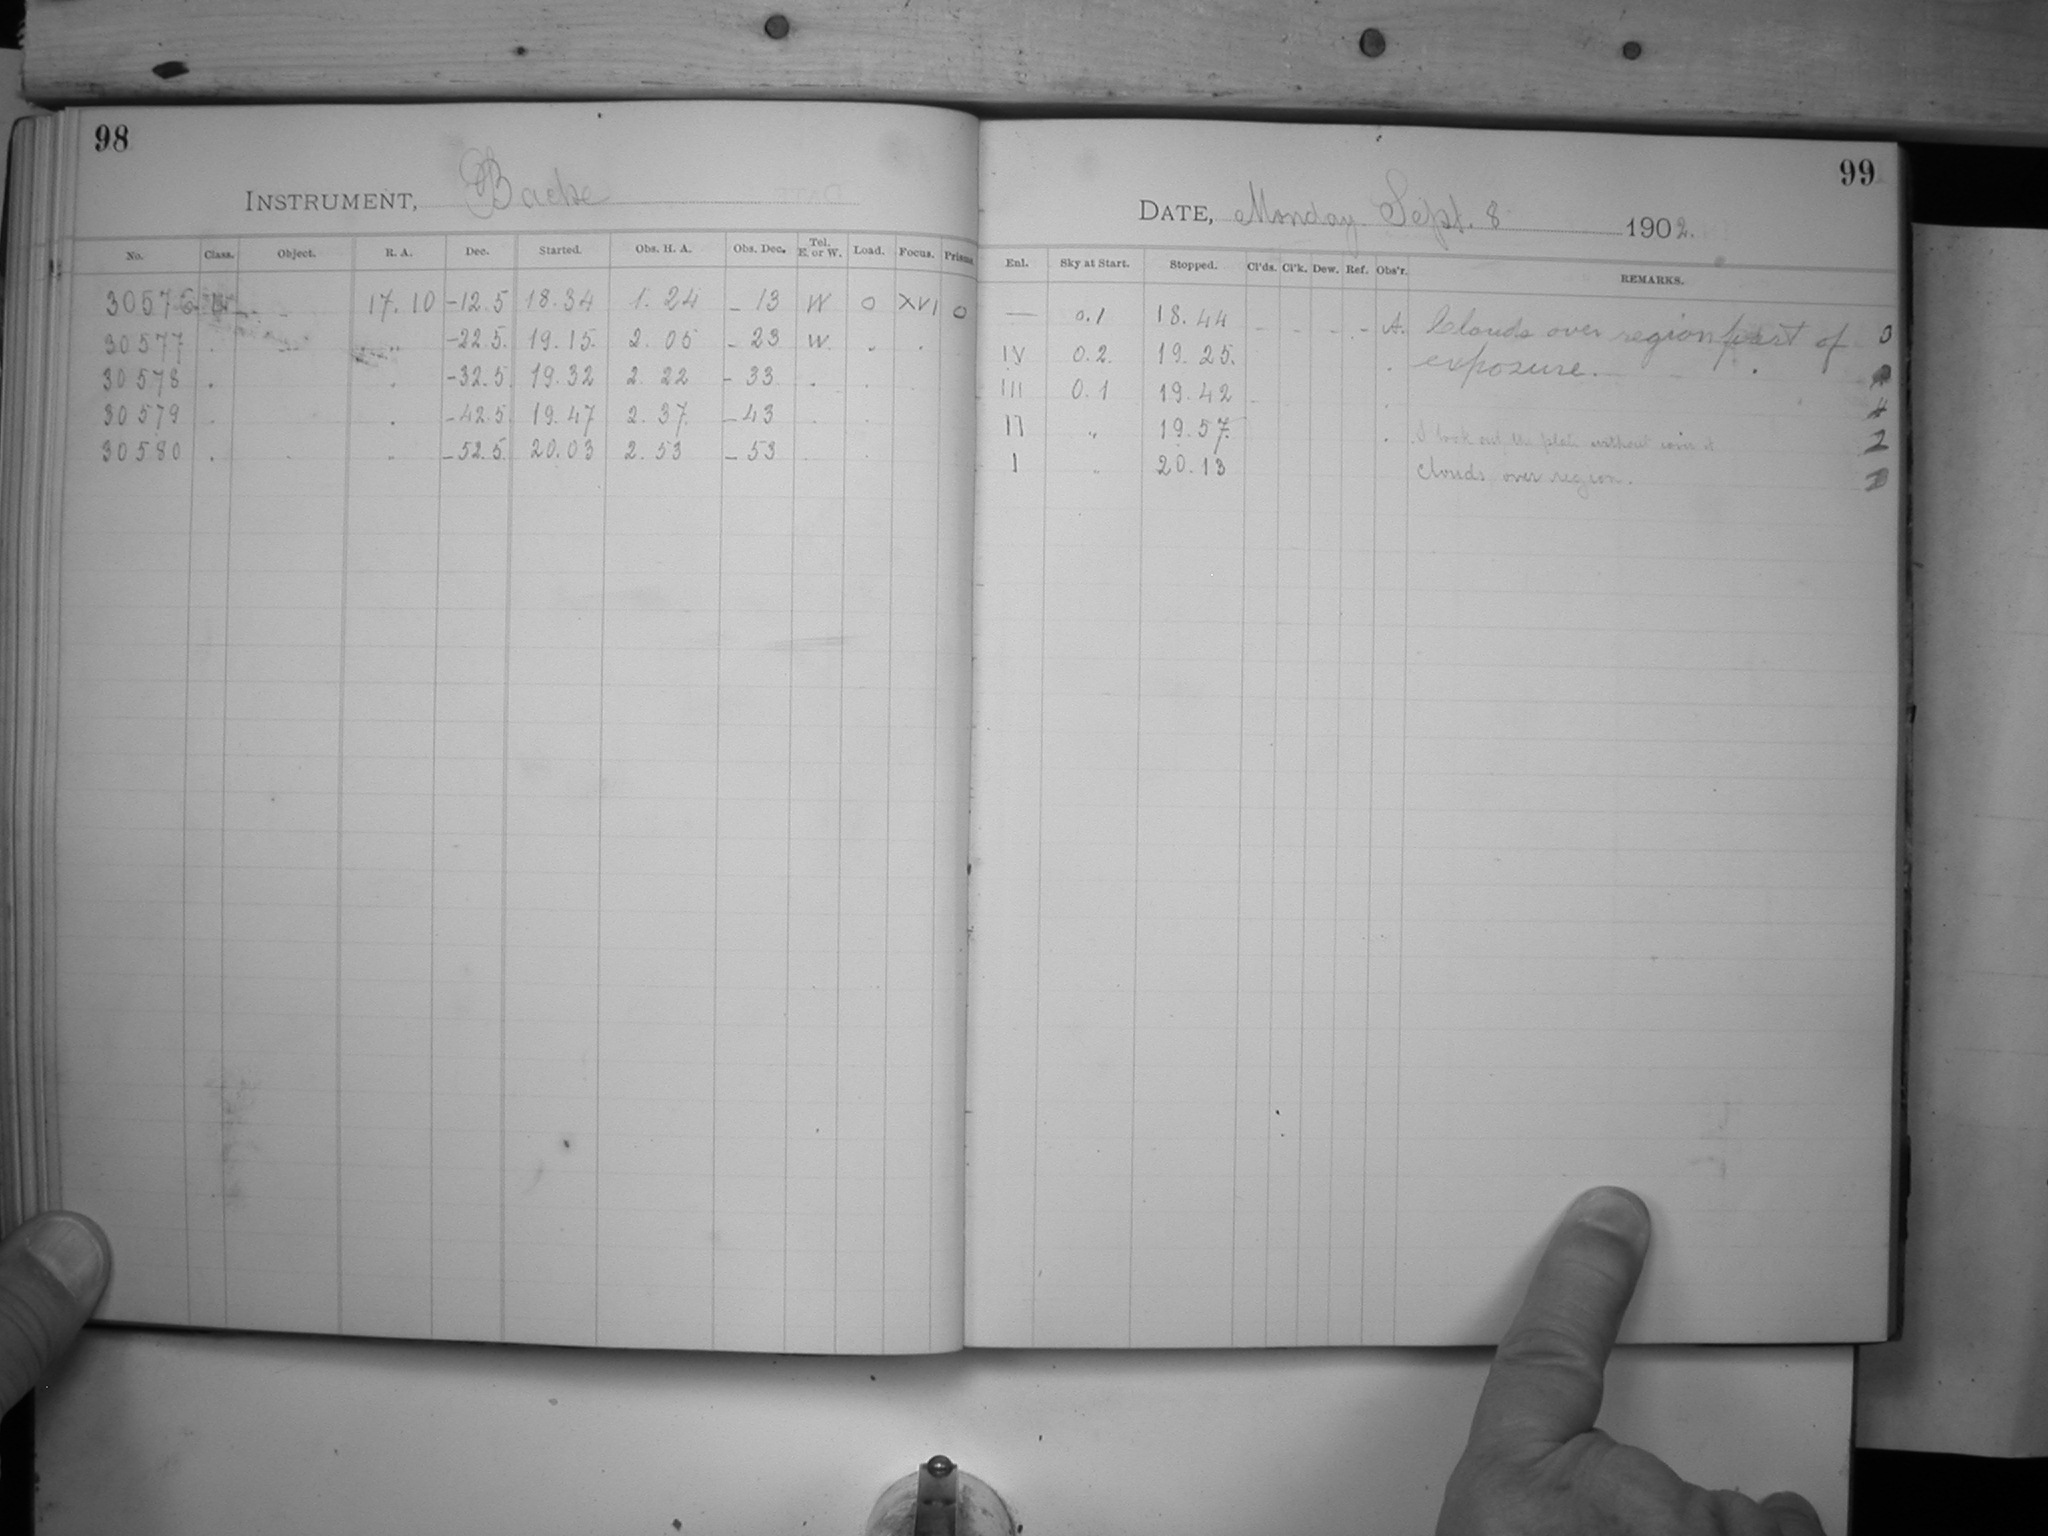 98
INSTRUMENT, Bache
No. Class. Object. R. A. Dec. Started. Obs. H. A. Obs. Dec. Tel. E. or W. Load. Focus. Prisms.
30576 17.10 -12.5 18.34 1. 24 - 13 W 0 XVI 0
30577 . " -22.5 19.15 2. 05 - 23 W " .
30578 . " -32.5 19.32 2. 22 - 33 . . .
30579 . . -42.5 19.47 2. 37 - 43 . .
30580 . . " -52.5 20.03 2. 53 - 53 . .
99
DATE, Monday Sept. 8 1902.
Enl. Sky at Start. Stopped. Cl'ds. Cl'k. Dew. Ref. Obs'r. REMARKS.
— 0.1 18.44 - - - - A. Clouds over region part of 0
IV 0.2 19.25 . exposure.
III 0.1 19.42 . 4
II " 19.57 . I took out the plate without 2
I " 20.13 clouds over region.